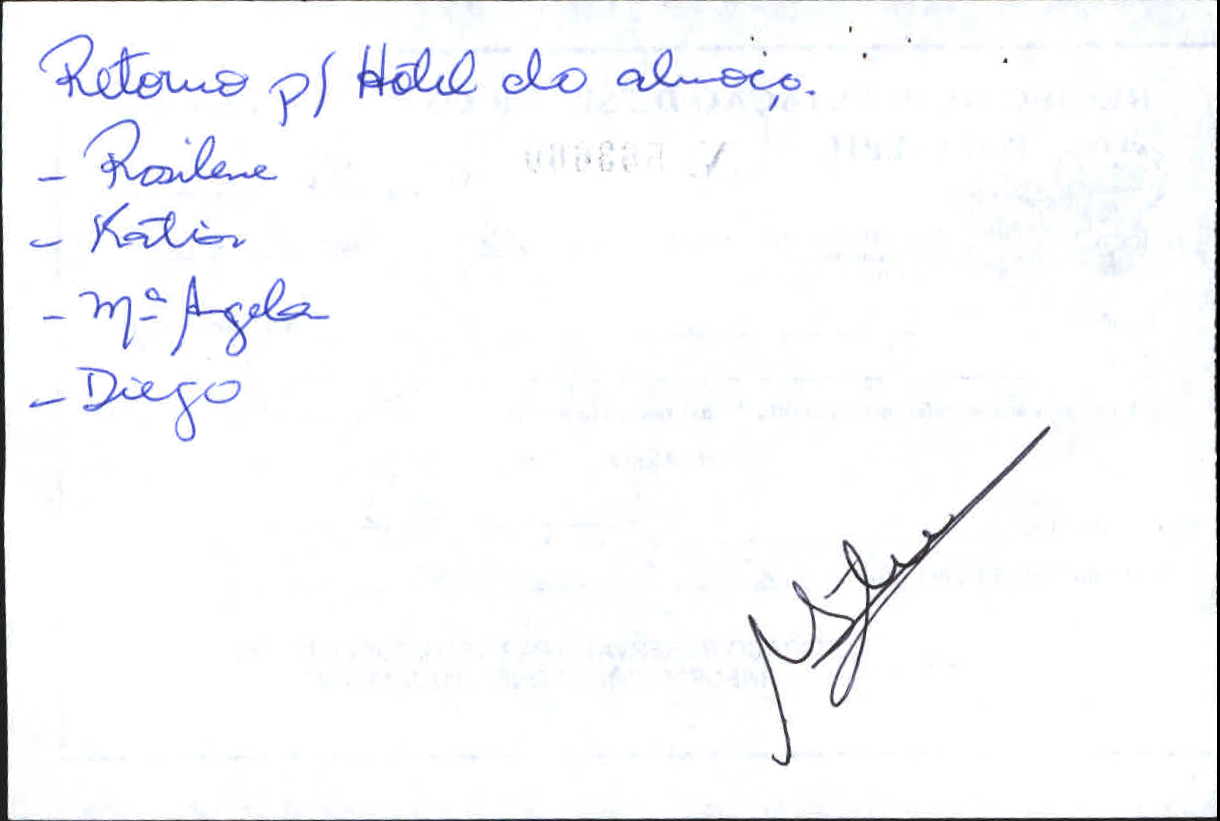 Retorno p/ Hotel do almoço.
- Rosilene
- Kátia
- Mª Angela
- Diego